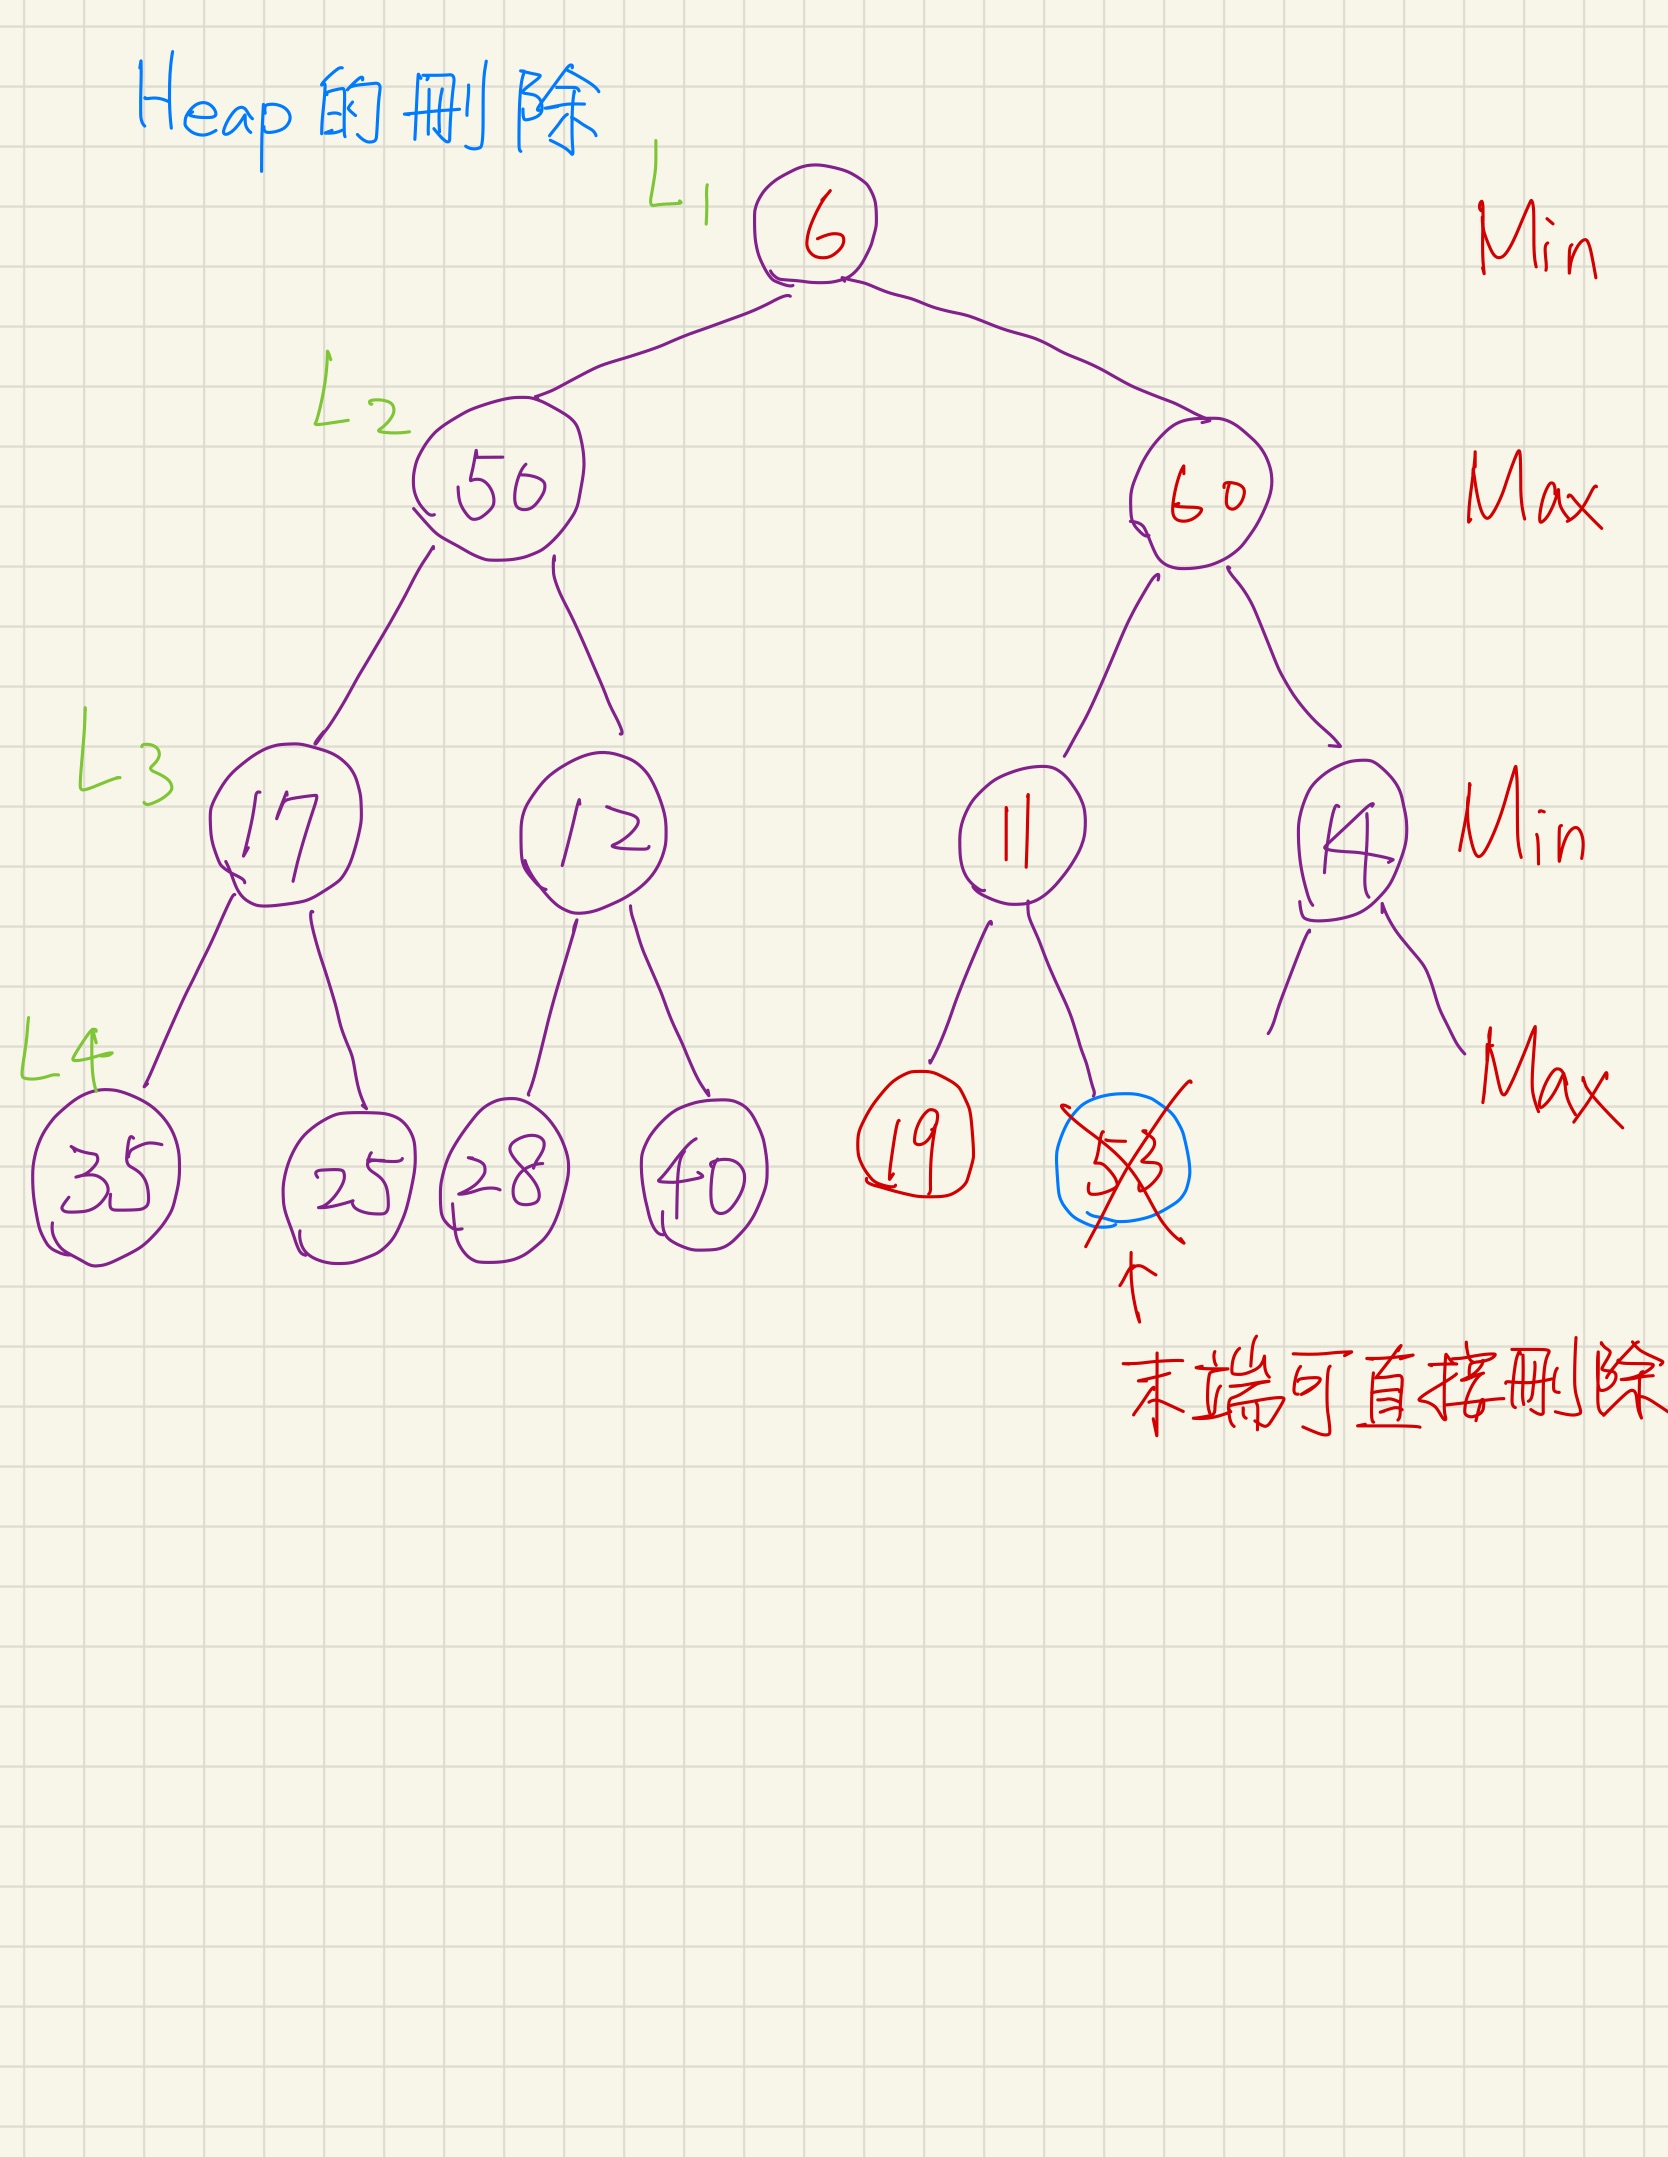 Heap的刪除
L1 6 Min
L2 50 60 Max
L3 17 12 11 14 Min
L4 Max
35 25 28 40 19 53
↑
末端可直接刪除